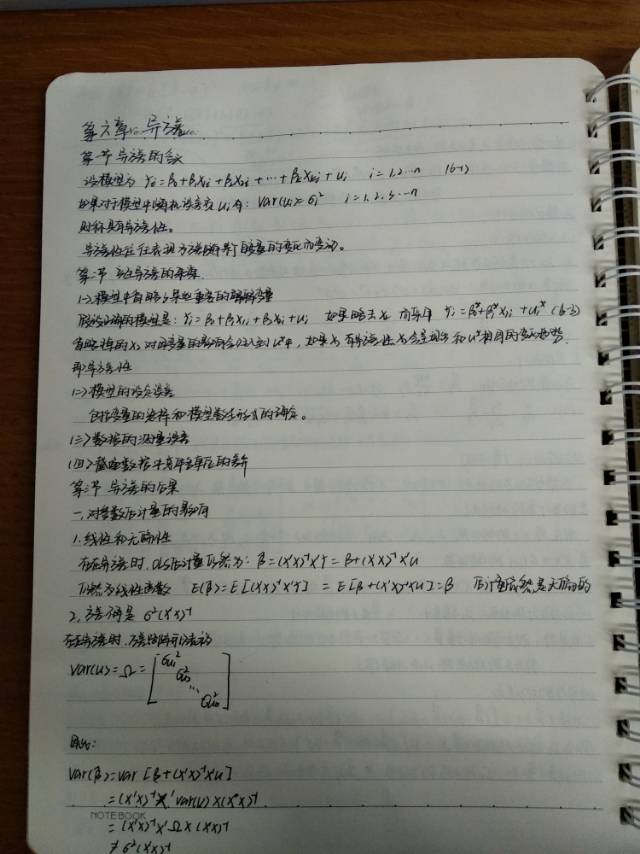 第六章 异方差
第一节 异方差的含义
设模型为 Yi=β0+β1X1i+β2X2i+…+βkXki+Ui i=1,2…n (6-1)
如果对于模型中随机误差项Ui有: Var(Ui)=σi² i=1,2,3…n
则称具有异方差性。
异方差性往往表现为方差随解释变量的变化而变动。
第二节 产生异方差的原因
(一)模型中省略了某些重要的解释变量
假设正确的模型是: Yi=β0+β1X1i+β2X2i+Ui 如果略去X2 而采用 Yi=β0*+β1*X1i+Ui* (6-3)
省略掉的X2对因变量的影响会归入到U*中,如果X2有异方差性会表现出和U*相同的变动趋势.
即异方差性
(二)模型的设定误差
包括变量的选择和模型数学形式的确定。
(三)数据的测量误差
(四)截面数据中各单位的差异
第三节 异方差的后果
一.对参数估计量的影响
1.线性和无偏性
存在异方差时,OLS估计量仍然为: β=(X'X)⁻¹X'Y=β+(X'X)⁻¹X'U
仍然为线性函数 E(β)=E[(X'X)⁻¹X'Y] = E[β+(X'X)⁻¹X'U]=β 估计量依然是无偏的
2.方差 σ²(X'X)⁻¹
存在异方差时,方差
Var(U)=Ω=
因此:
Var(β)=Var[β+(X'X)⁻¹X'U]
=(X'X)⁻¹X' Var(U)X(X'X)⁻¹
NOTEBOOK
=(X'X)⁻¹X'ΩX(X'X)⁻¹
≠σ²(X'X)⁻¹